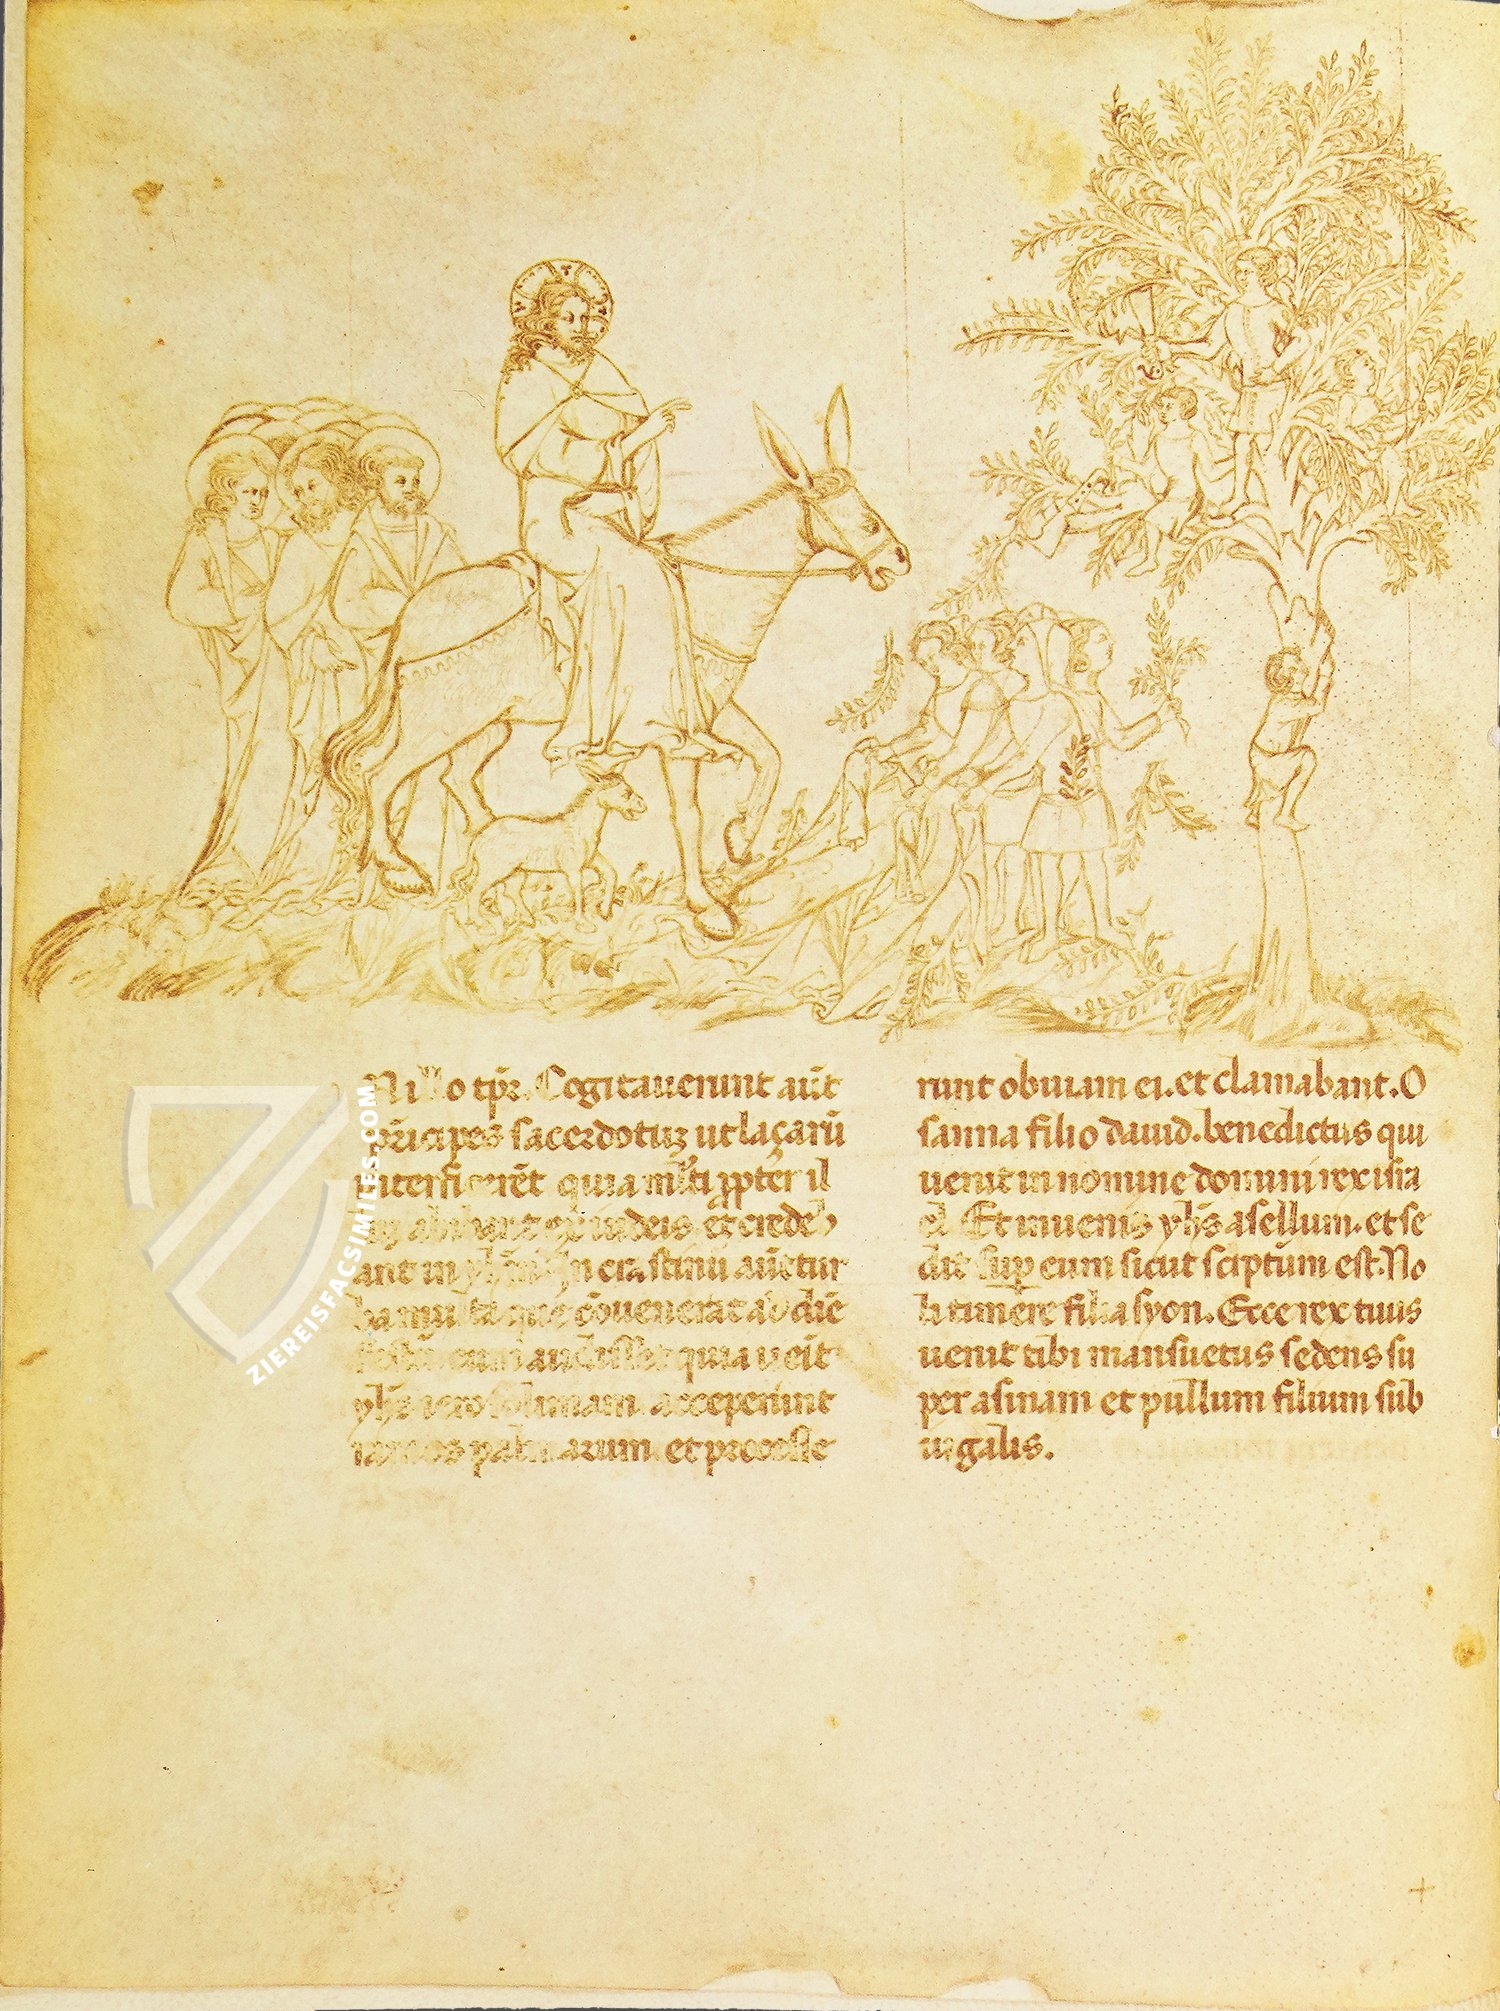 N illo tp̄r. Cogitauerunt aūt
pr̄icipes sacerdotuꝫ ut laçarū
interficerēt quia ml̄ti ꝓpter il
abibant ex iudeis. et credeb
ant in yhm̄. In crastinū aūt tur
ba multa que cōuenerat ad diē
festū cum audisset quia uēit
yhs̄ ierosolimam. acceperunt
ramos palmarum. et processe
runt obuiam ei. et clamabant. O
sanna filio dauid. benedictus qui
uenit in nomine domini rex isra
el. Et inuenis yhs̄ asellum. et se
dit sup̱ eum sicut sciptum est. No
li timere filia syon. Ecce rex tuus
uenit tibi mansuetus sedens su
per asinam et pullum filium sub
iugalis.
ZIEREISFACSIMILES.COM